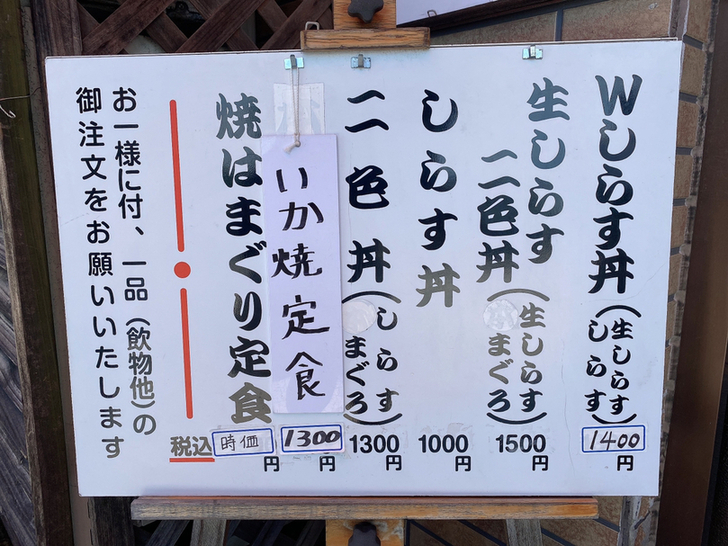 Wしらす丼（生しらす
しらす）
1400円
生しらす
二色丼（生しらす
まぐろ）
1500円
しらす丼
1000円
二色丼（しらす
まぐろ）
1300円
いか焼定食
1300円
焼はまぐり定食
税込
時価円
お一様に付、一品（飲物他）の
御注文をお願いいたします